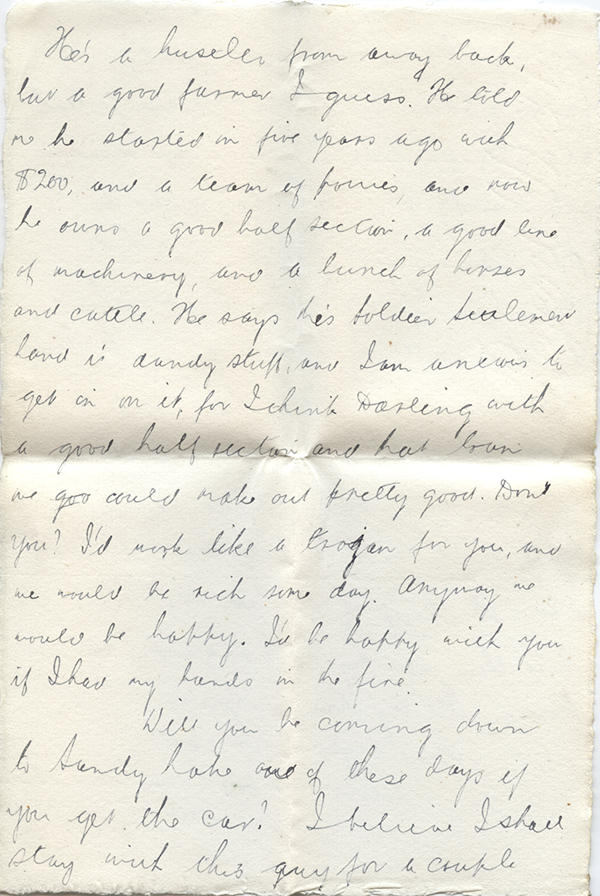 He's a husler from away back,
but a good farmer I guess. He told
me he started in five years ago with
$200, and a team of ponies, and now
he owns a good half section, a good line
of machinery, and a bunch of horses
and cattle. He says this Soldier Settlement
land is dandy stuff, and I am anxious to
get in on it, for I think Darling with
a good half section and that loan
we could make out pretty good. Don't
you? I'd work like a trojan for you, and
we would be rich some day. Anyway we
would be happy. I'd be happy with you
if I had my hands in the fire.
Will you be coming down
to Sandy Lake one of these days if
you get the car? I believe I shall
stay with this guy for a couple